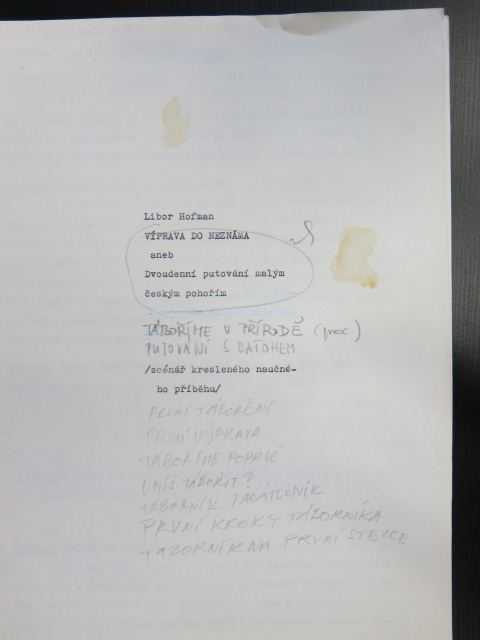 Libor Hofman
VÍPRAVA DO NEZNÁMA
aneb
Dvoudenní putování malým
českým pohořím
TÁBOŘÍME V PŘÍRODĚ (proč)
PUTOVÁNÍ S BAŤOHEM
/scénář kresleného nauč-
ho příběhu/
PRVNÍ TÁBOŘENÍ
PRVNÍ VÝPRAVA
TÁBOŘÍME POPRVÉ
UMÍŠ TÁBOŘIT?
TÁBORNÍK ZAČÁTEČNÍK
PRVNÍ KROKY TÁBORNÍKA
TÁBORNÍK NA PRVNÍ STEZCE